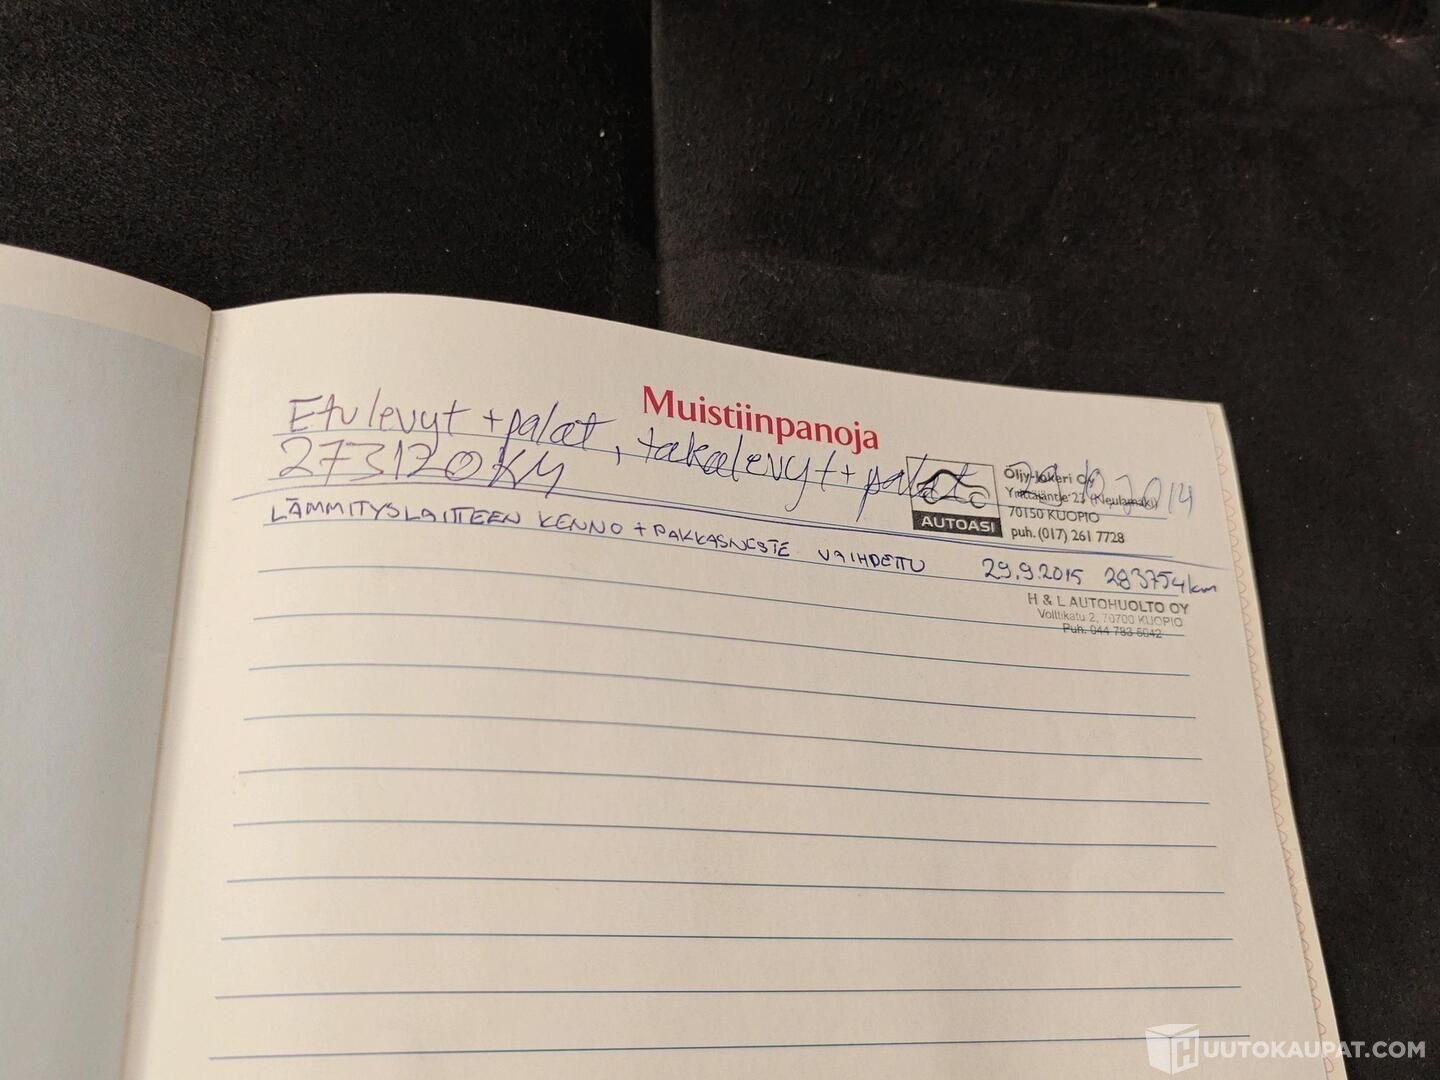 Muistiinpanoja
Etulevyt + palat, takalevyt + palat 2014
273120KM
AUTOASI
Öljy-Jokeri Oy
Yrittäjäntie 23 (Neulamäki)
70150 KUOPIO
puh. (017) 261 7728
LÄMMITYSLAITTEEN KENNO + PAKKASNESTE VAIHDETTU 29.9.2015 283754km
H & L AUTOHUOLTO OY
Volttikatu 2, 70700 KUOPIO
Puh. 044 783 5042
UUTOKAUPAT.COM